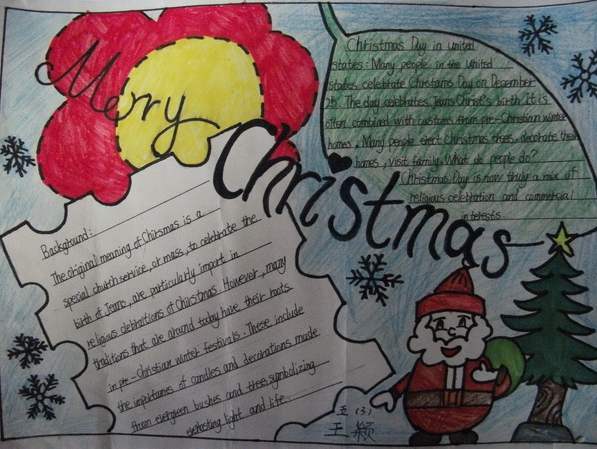 Merry
Christmas
Christmas Day in united
states: Many people in the united
states celebrate Christams Day on December
25. The day celebrates Jeams Christ's birth It is
often combined with customs from pre-Christian winter
homes, Many people erect Christmas trees, decorate their
homes, visit family. What do people do?
Christmas Day is now truly a mix of
religious celebration and commercial
interests
Background:
The original meaning of Chirsmas is a
special church service, or mass, to celebrate the
birth of Jeams, are particularly import in
religious clebrations of Christmas. However, many
traditions that are around today have their roots
in pre-Christian winter festivals. These include
the importances of candles and decorations made
from evergreen bushes and tree, symbolizing
everlasting light and life.
五(3)
王颖